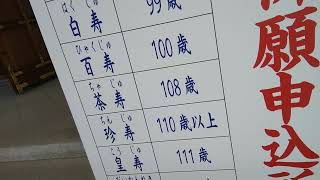 はくじゅ
白寿 99歳
ひゃくじゅ
百寿 100歳
ちゃじゅ
茶寿 108歳
ちんじゅ
珍寿 110歳以上
こうじゅ
皇寿 111歳
願申込